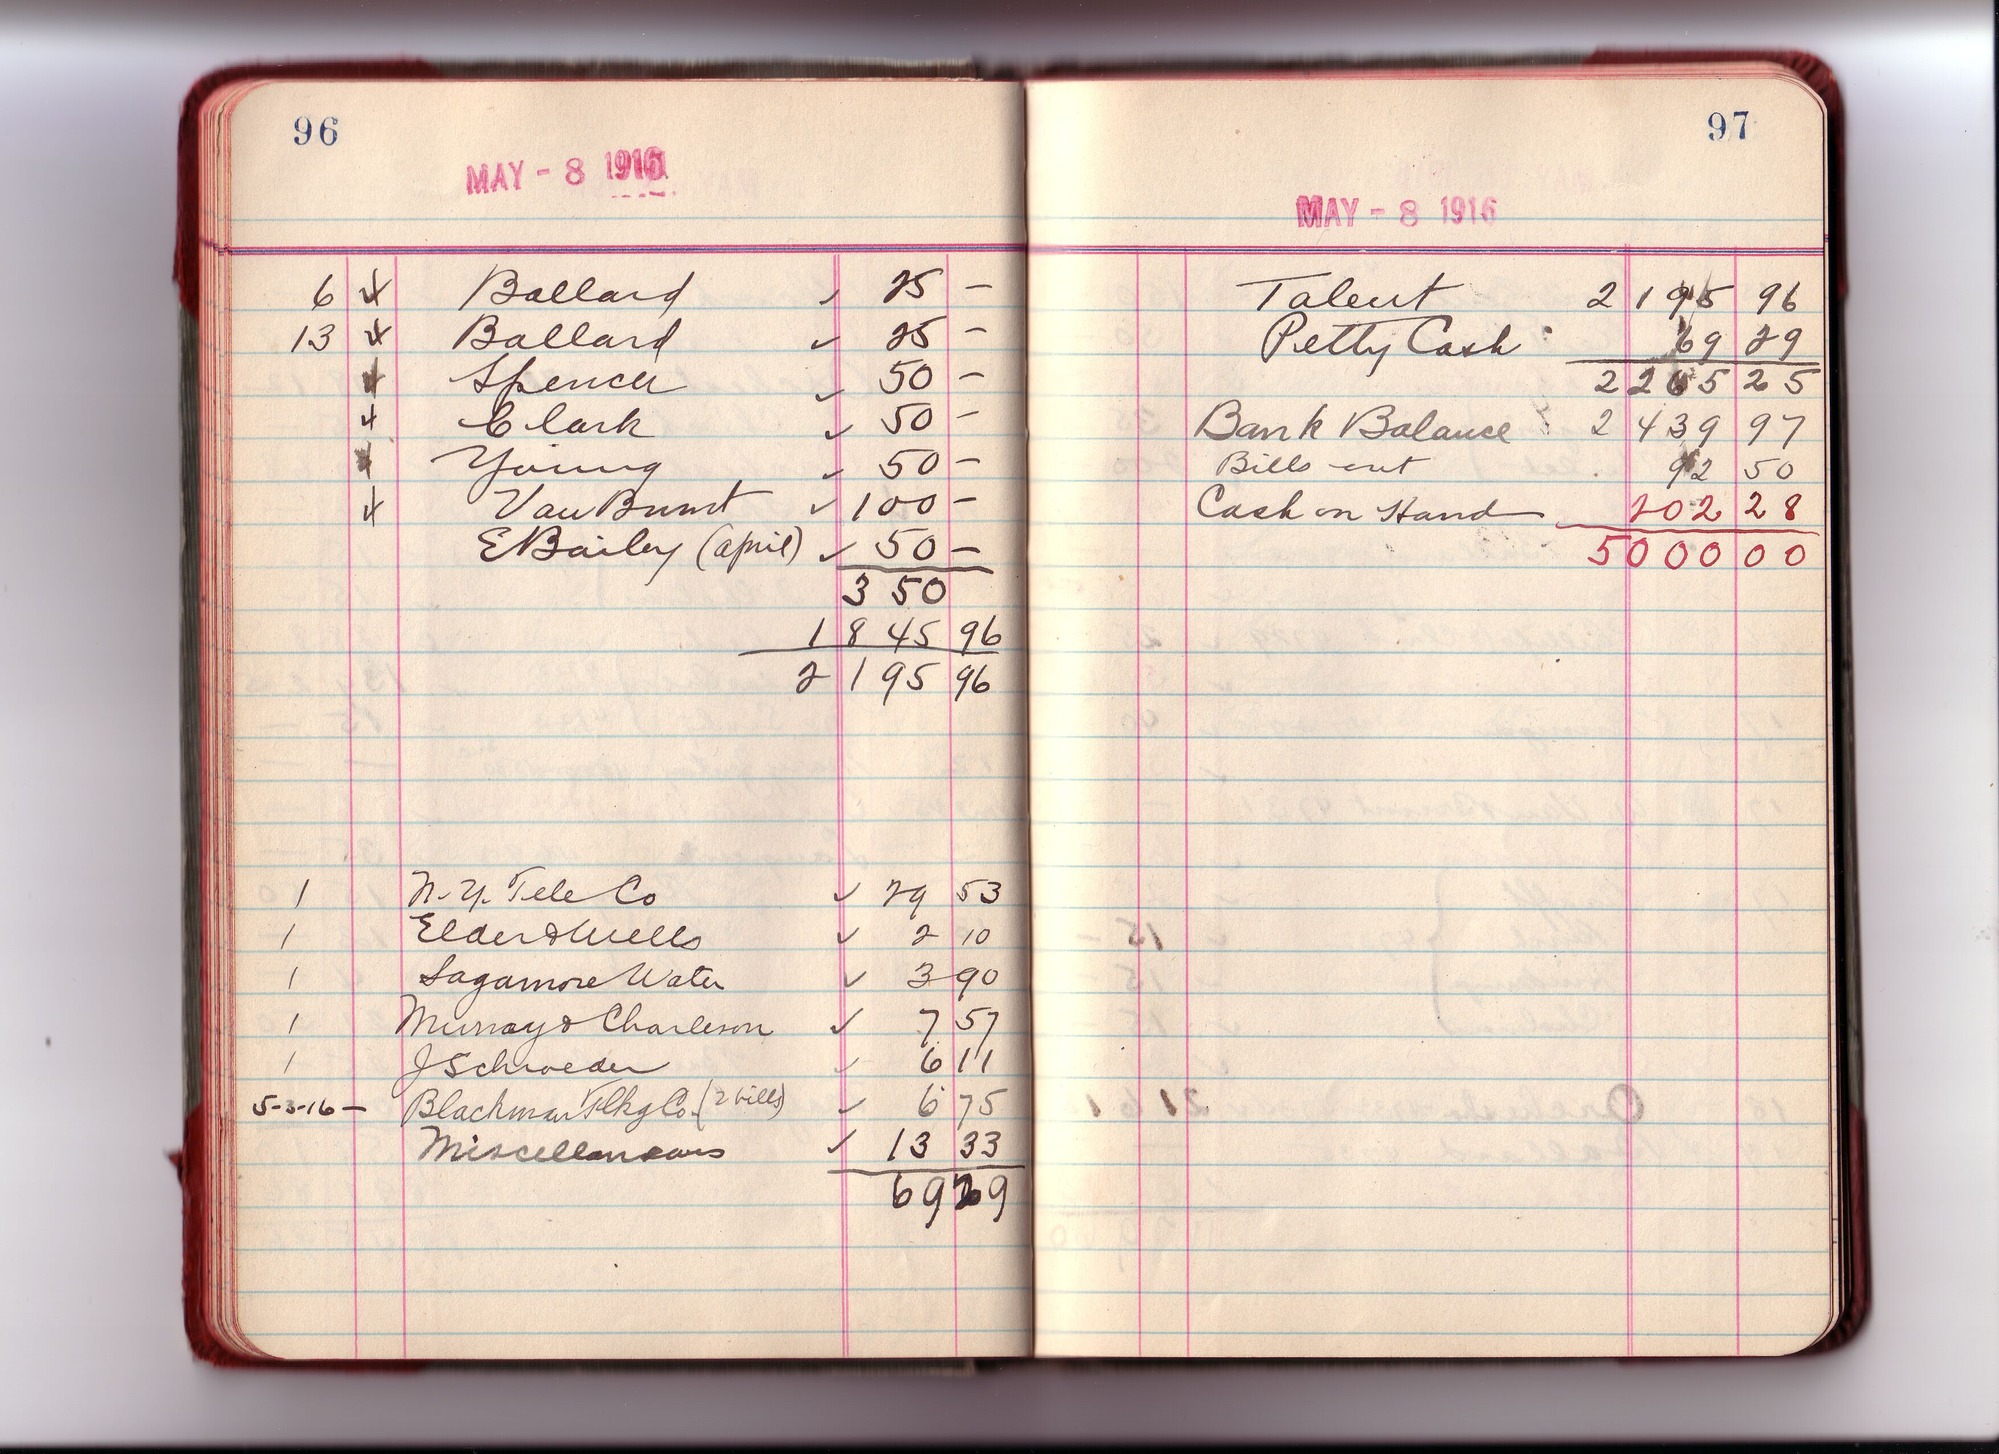 96
MAY - 8 1916
6 Ballard ✓ 25 –
13 Ballard ✓ 25 –
Spencer ✓ 50 –
Clark ✓ 50 –
Young ✓ 50 –
Van Brunt ✓ 100 –
E Bailey (April) ✓ 50 –
350
1845 96
2195 96
1 N.Y. Tele Co ✓ 29 53
1 Elder & Wells ✓ 2 10
1 Sagamore Water ✓ 3 90
1 Murray & Charleson ✓ 7 57
1 J Schroeder ✓ 6 11
5-3-16 – Blackman Co. (2 bills) ✓ 6 75
Miscellaneous ✓ 13 33
69 29
97
MAY - 8 1916
Talent 2195 96
Petty Cash 69 29
2265 25
Bank Balance 2439 97
Bills out 92 50
Cash on Hand 202 28
5000 00